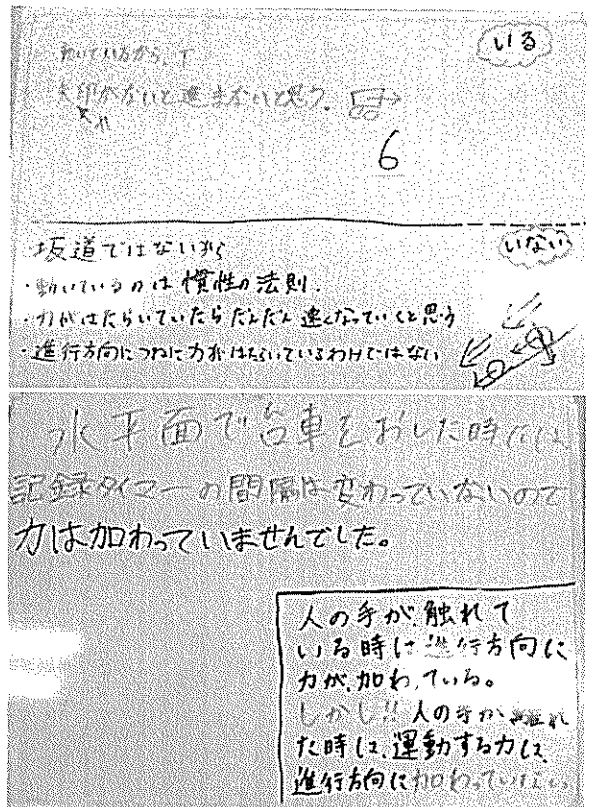 いる
動いているから、
矢印がないと進まないと思う。
6
いない
坂道ではないから
・動いているのは慣性の法則.
・力がはたらいていたらだんだん速くなっていくと思う
・進行方向につねに力がはたらいているわけではない
水平面で台車をおした時には
記録タイマーの間隔は変わっていないので
力は加わっていませんでした。
人の手が、触れて
いる時は進行方向に
力が、加わっている。
しかし!!人の手が離れ
た時は、運動する力は、
進行方向に加わっていない。